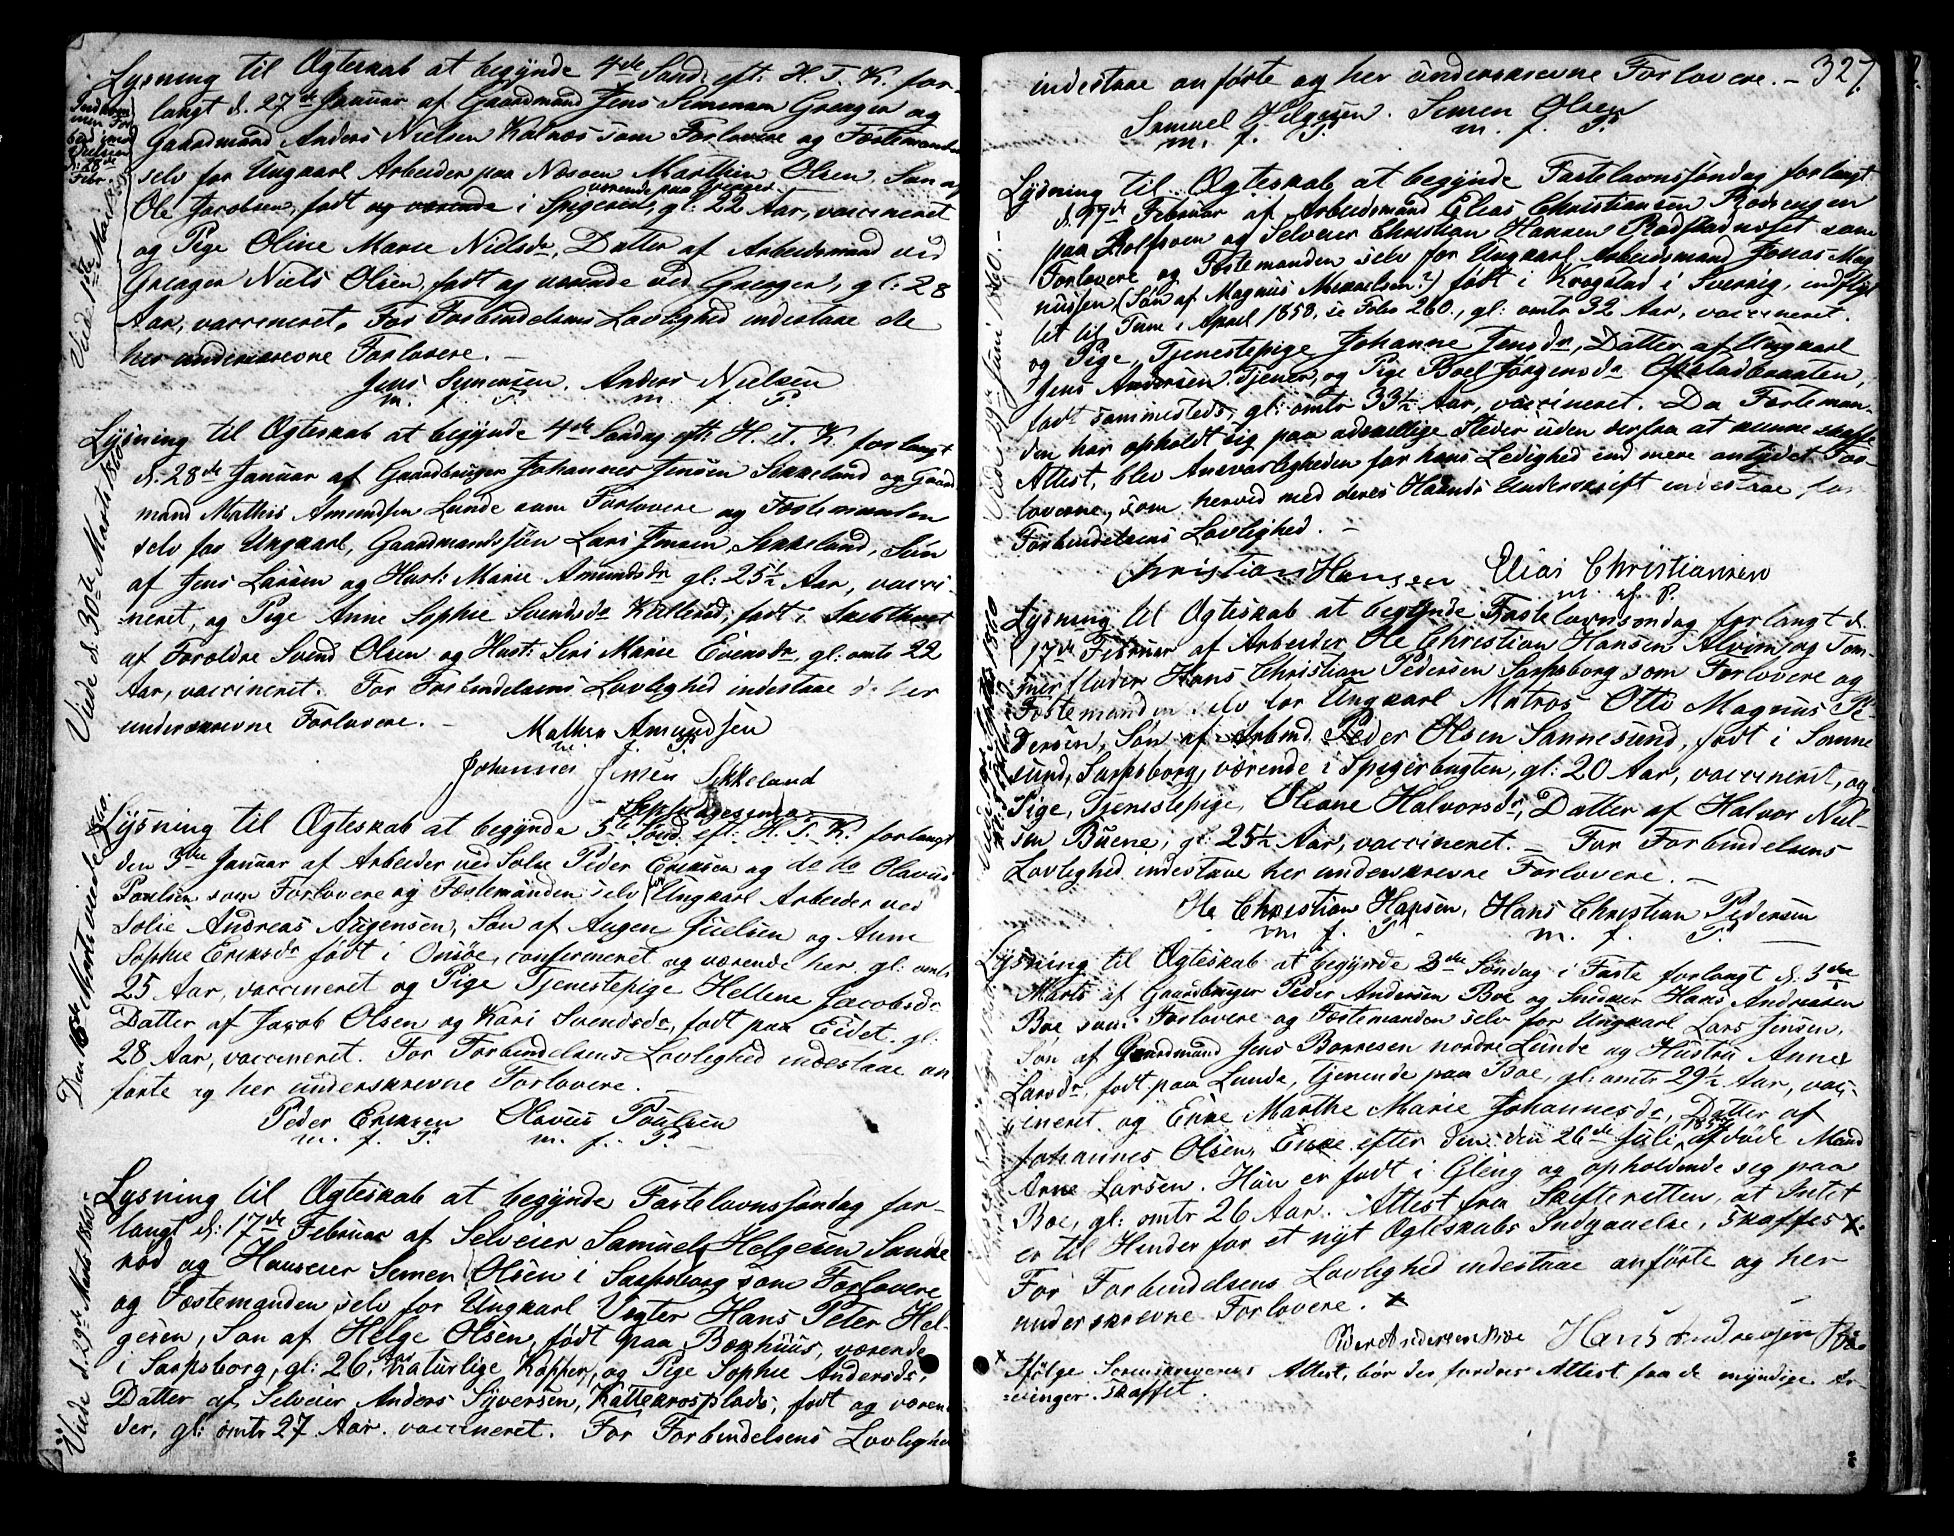 Lysning til Ægteskab at begynde 4de Sønd. eft. H. T. K. for-
langt d. 27de Januar af Gaardmand Jens Simensen Greager og
Gaardmand Anders Nielsen Kalnæs som Forlovere og Fæstemanden
selv for Ungkarl Arbeider paa Næsøen Marthin Olsen, Søn af
værende paa Greager
Ole Jacobsen, født og værende i Spigeren, gl: 22 Aar, vaccineret
og Pige Oline Marie Nielsdr, Datter af Arbeidsmand ved
Greager Niels Olsen, født og værende ved Greager, gl: 28
Aar, vaccineret. For Forbindelsens Lovlighed indestaae de
her underskrevne Forlovere. —
Jens Symensen. Anders Nielsen
m. f. P. m. f. P.
Vied 1ste Marts
Lysning til Ægteskab at begynde 4de Søndag eft. H. T. K. forlangt
d. 28de Januar af Gaardbruger Johannes Jensen Sikkeland og Gaard-
mand Mathis Amundsen Lunde som Forlovere og Fæstemanden
selv for Ungkarl, Gaardmandssøn Lars Jensen Sikkeland, Søn
af Jens Larsen og Hust: Marie Amundsdr gl: 25½ Aar, vacci-
neret, og Pige Anne Sophie Svendsdr Kallerød, født i
af Forældre Svend Olsen og Hust: Siri Marie Evensdr, gl: omtr 22
Aar, vaccineret. For Forbindelsens Lovlighed indestaae de her
underskrevne Forlovere. —
Mathis Amundsen
m. f. P.
Johannes Jensen Sikkeland
Viede d. 30te Marts 1860
Septuagesima
Lysning til Ægteskab at begynde 5te Sønd. eft. H. T. K. forlangt
den 3die Januar af Arbeider ved Solie Peder Eriksen og do do Olavus
Poulsen som Forlovere og Fæstemanden selv for Ungkarl Arbeider ved
Solie Andreas Augensen, Søn af Augen Juelsen og Anne
Sophie Eriksdr født i Onsøe, confirmeret og værende her gl: omtr
25 Aar, vaccineret og Pige Tjenestepige Hellene Jacobsdr
Datter af Jacob Olsen og Kari Svendsdr, født paa Eidet, gl:
28 Aar, vaccineret. For Forbindelsens Lovlighed indestaae an
førte og her underskrevne Forlovere. —
Peder Eriksen Olavus Poulsen
m. f. P. m. f. P.
Den 16de Marts viede 1860.
Lysning til Ægteskab at begynde Fastelavnssøndag for-
langt d: 17de Februar af Selveier Samuel Helgesen Sande
rød og Huuseier Simen Olsen i Sarpsborg som Forlovere
og Fæstemanden selv for Ungkarl Vogter Hans Peter Hel-
gesen, Søn af Helge Olsen, født paa Borhuus, værende
i Sarpsborg, gl: 26, havt naturlige Kopper, og Pige Sophie Andersdr,
Datter af Selveier Anders Syversen, Kattekrosplads, født og væren
der, gl: omtr 27 Aar. vaccineret. For Forbindelsens Lovlighed
Viede d. 29de Marts 1860.
327.
indestaae anførte og her underskrevne Forlovere. —
Samuel Helgesen. Simen Olsen
m. f. P. m. f. P.
Lysning til Ægteskab at begynde Fastelavnssøndag forlangt
d. 7de Februar af Arbeidsmand Elias Christiansen Rødsengen
paa Rolfsøen og Selveier Christian Hansen Rødskadnesset som
Forlovere og Fæstemanden selv for Ungkarl Arbeidsmand Jonas Mag
nussen (Søn af Magnus Mikkelsen?) født i Krogstad i Sverrig, indflyt
tet til Tune i April 1858, se Folio 260, gl: omtr 32 Aar, vaccineret.
og Pige, Tjenestepige Johanne Jensdr, Datter af Ungkarl
Jens Andersen Tjener, og Pige Boel Jørgensdr Ofstadbraaten,
født sammesteds, gl: omtr 33½ Aar, vaccineret. Da Fæsteman-
den har opholdt sig paa adskillige Steder uden derfra at kunne skaffe
Attest, blev Ansvarligheden for hans Ledighed end mere antydet For-
loverne, som herved med deres Haands Underskrift indestaae for
Forbindelsens Lovlighed. —
Christian Hansen Elias Christiansen
m. f. P.
Viede d. 29de Juni 1860.
Lysning til Ægteskab at begynde Fastelavnsøndag forlangt d.
17de Februar af Arbeider Ole Christian Hansen Alvim og Tøm-
merfløder Hans Christian Pedersen Sarpsborg som Forlovere og
Fæstemanden selv for Ungkarl Matros Otto Magnus Pe-
dersen, Søn af Arbmd. Peder Olsen Sannesund, født i Sanne
sund, Sarpsborg, værende i Spigerbugten, gl: 20 Aar, vaccineret, og
Pige, Tjenestepige, Oleane Halvorsdr, Datter af Halvor Niel-
sen Buene, gl: 25½ Aar, vaccineret. — For Forbindelsens
Lovlighed indestaae her underskrevne Forlovere. —
Ole Christian Hansen, Hans Christian Pedersen
m. f. P. m. f. P.
Lysning til Ægteskab at begynde 3die Søndag i Faste forlangt d. 3die
Marts af Gaardbruger Peder Andersen Boe og Snedker Hans Andreasen
Boe som Forlovere og Fæstemanden selv for Ungkarl Lars Jensen,
Søn af Gaardmand Jens Borresen nordre Lunde og Hustru Anne
Larsdr, født paa Lunde, tjenende paa Boe, gl: omtr 29½ Aar, vac-
cineret og Enke Marthe Marie Johannesdr, Datter af
Johannes Olsen, Enke efter den den 26de Juli 1858 afdøde Mand
Arne Larsen. Hun er født i Gleng og opholdende sig paa
Boe, gl: omtr 26 Aar. Attest fra Skifteretten, at Intet
er til Hinder for et nyt Ægteskabs Indgaaelse, skaffes x.
For Forbindelsens Lovlighed indestaae anførte og her
underskrevne Forlovere. x
Peder Andersen Boe Hans Andreasen Boe
x Ifølge Sorenskriverens Attest, bør der fordres Attest fra de myndige Ar-
vinger. skaffet.